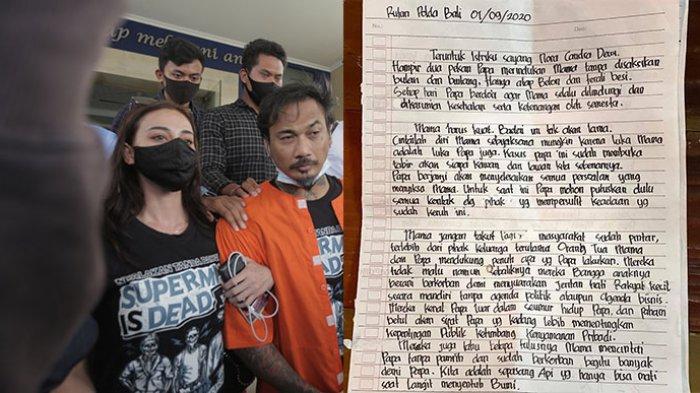 up melayani ang
SUPERM
IS DEAD
SUPERM
IS DEAD
Rutan Polda Bali 01/09/2020
No.:
Date:
Teruntuk Istriku sayang Nora Candra Dewi.
Hampir dua pekan Papa merindukan Mama tanpa disaksikan
bulan dan bintang. Hanya atap Beton dan terali besi.
Setiap hari Papa berdoa agar Mama selalu dilindungi dan
dikaruniai kesehatan serta ketenangan oleh semesta.
Mama harus kuat. Badai ini tak akan lama.
Cintailah diri Mama sebijaksana mungkin karena luka Mama
adalah luka Papa juga. Kasus papa ini sudah membuka
tabir akan siapa kawan dan lawan kita sebenarnya.
Papa berjanji akan menyelesaikan semua persoalan yang
menyiksa Mama. Untuk saat ini Papa mohon putuskan dulu
semua kontak dg pihak yg mempersulit keadaan yg
sudah keruh ini.
Mama jangan takut lagi, masyarakat sudah pintar,
terlebih dari pihak keluarga terutama Orang Tua Mama
dan Papa mendukung penuh apa yg Papa lakukan. Mereka
tidak malu namun sebaliknya mereka Bangga anaknya
berani berkorban demi menyuarakan jeritan hati Rakyat kecil
suara mandiri tanpa agenda politik ataupun agenda bisnis.
Mereka kenal Papa luar dalam seumur hidup Papa, dan paham
betul akan sifat Papa yg kadang lebih mementingkan
Kepentingan Publik ketimbang Kenyamanan Pribadi.
Mereka juga tahu betapa tulusnya Mama mencintai
Papa tanpa pamrih dan sudah berkorban begitu banyak
demi Papa. Kita adalah sepasang Api yg hanya bisa mati
saat Langit menyentuh Bumi.